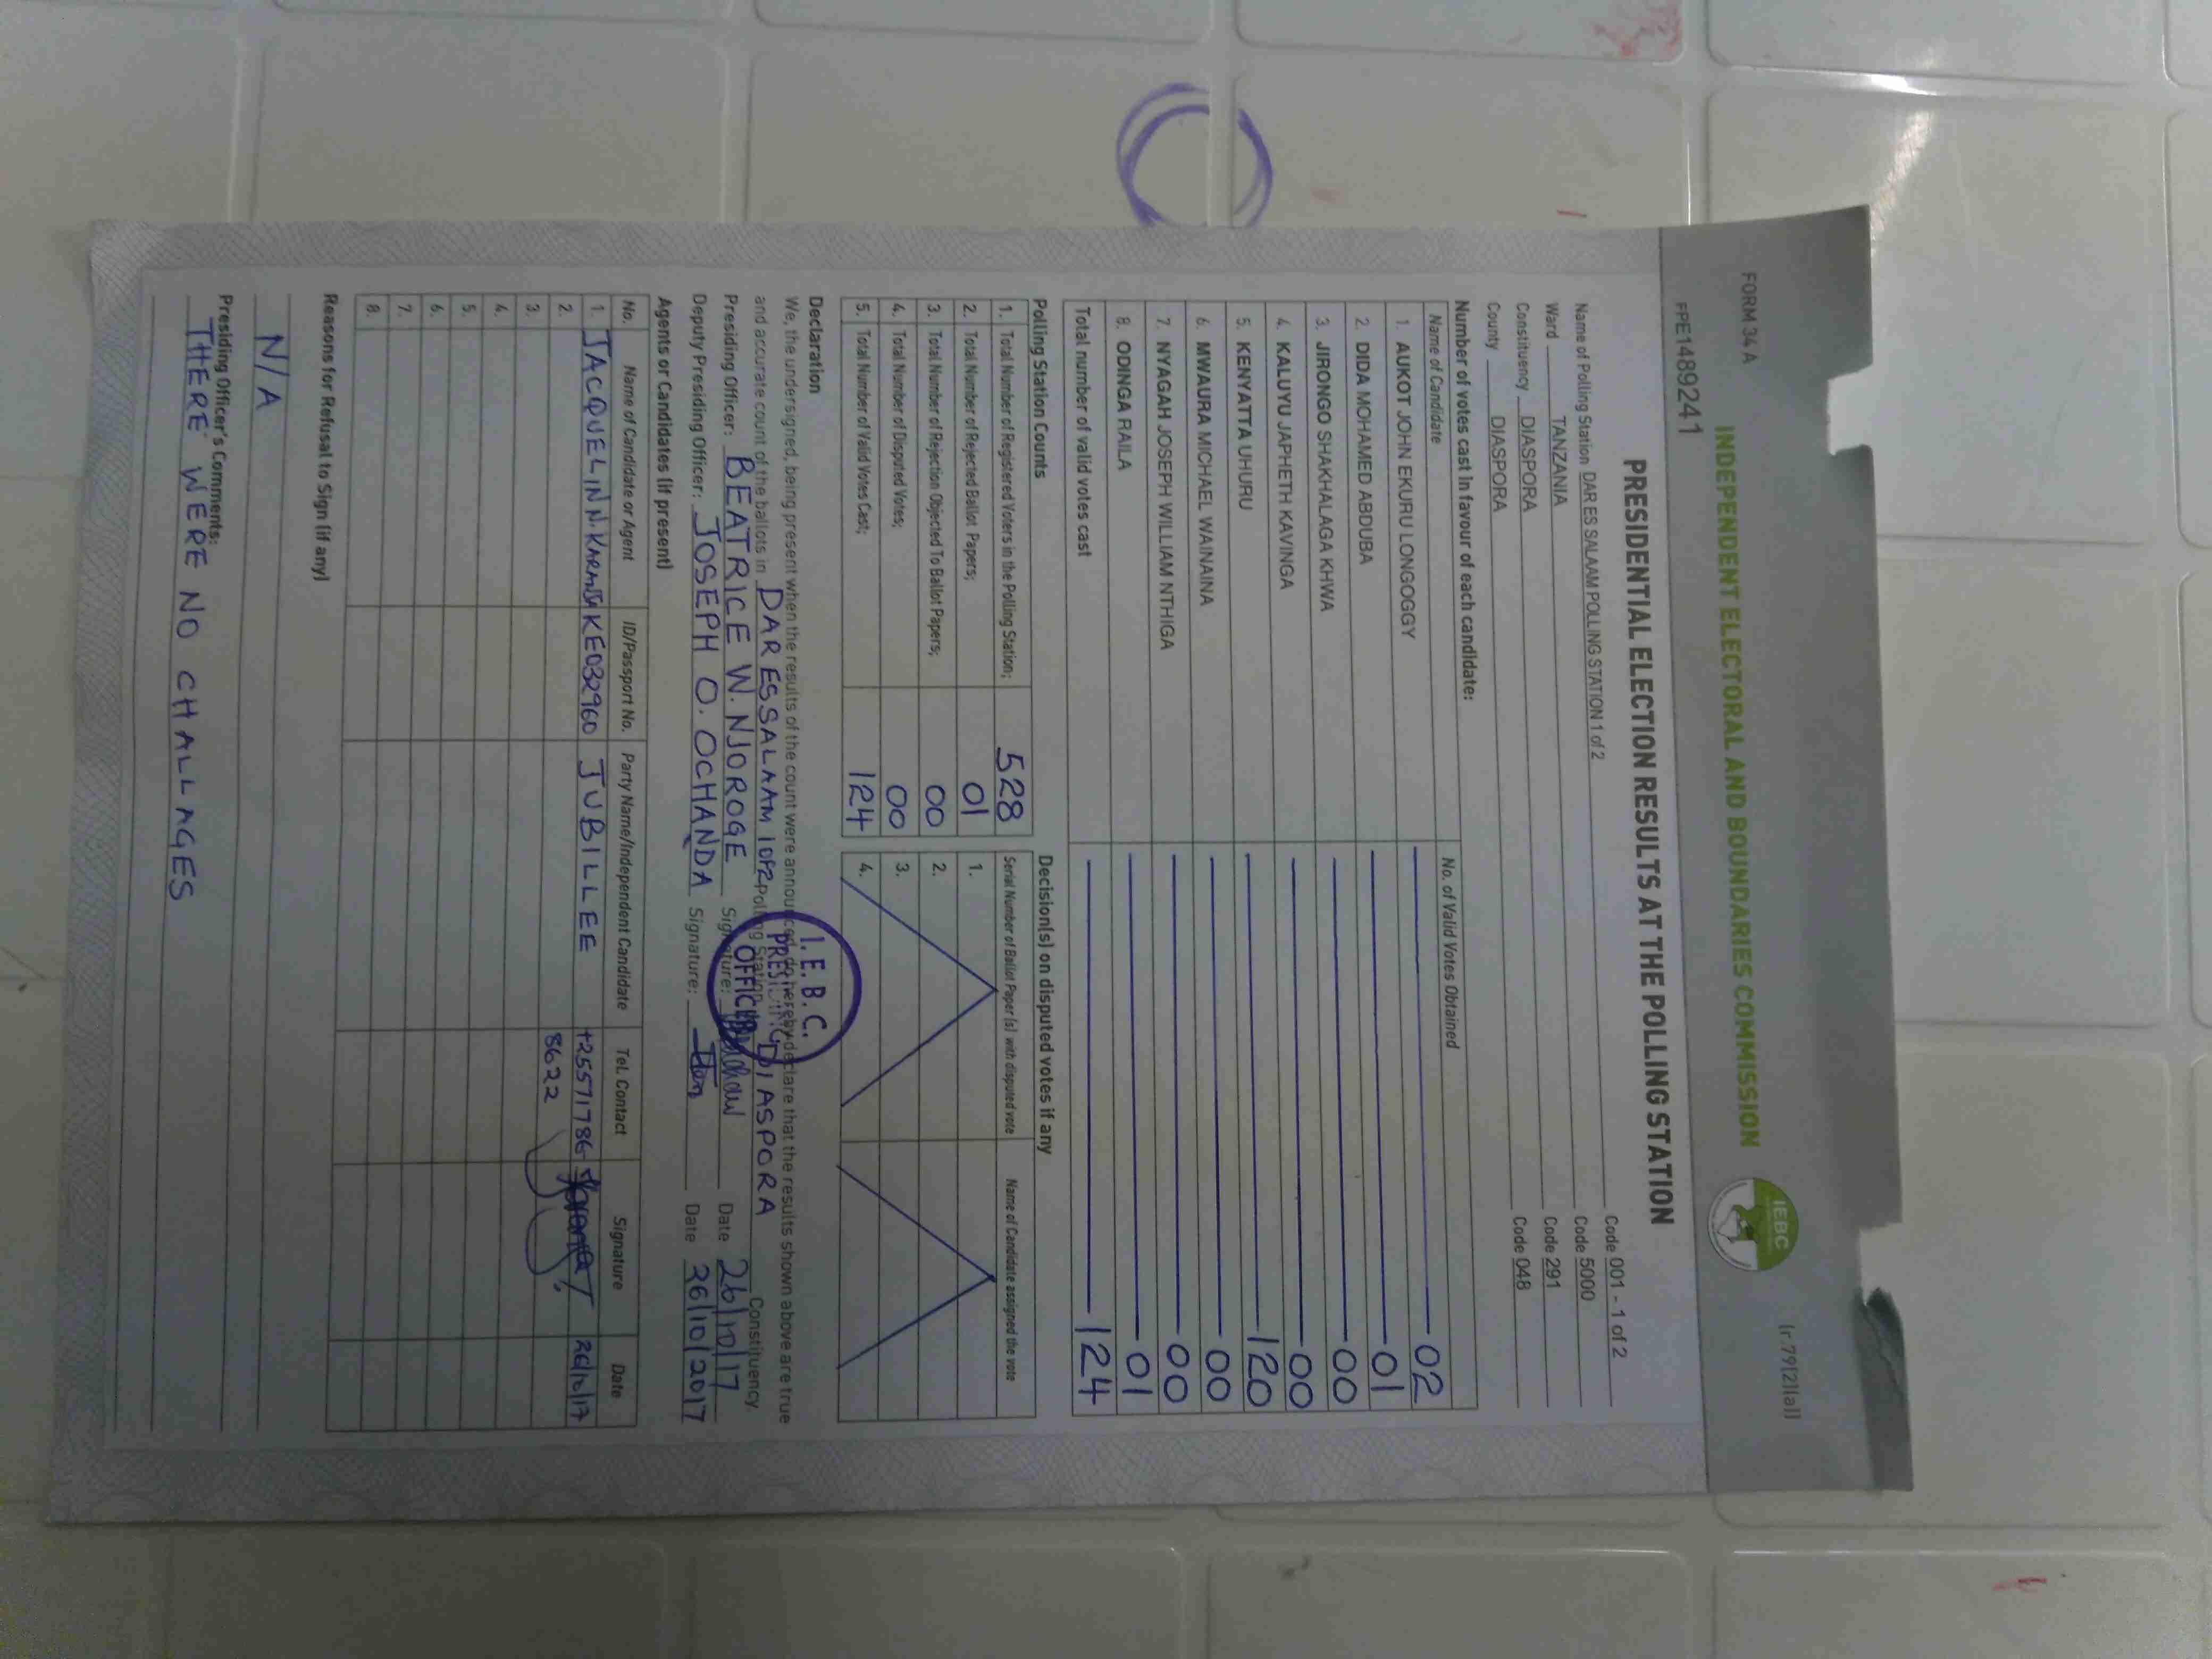 FORM 34 A
(r.79(2)(a))
INDEPENDENT ELECTORAL AND BOUNDARIES COMMISSION
IEBC
PRESIDENTIAL ELECTION RESULTS AT THE POLLING STATION
Name of Polling Station DAR ES SALAAM POLLING STATION 1 of 2 Code 001 - 1 of 2
Ward TANZANIA Code 5000
Constituency DIASPORA Code 291
County DIASPORA Code 048
Number of votes cast in favour of each candidate:
Name of Candidate No. of Valid Votes Obtained
1. AUKOT JOHN EKURU LONGOGGY 02
2. DIDA MOHAMED ABDUBA 01
3. JIRONGO SHAKHALAGA KHWA 00
4. KALUYU JAPHETH KAVINGA 00
5. KENYATTA UHURU 120
6. MWAURA MICHAEL WAINAINA 00
7. NYAGAH JOSEPH WILLIAM NTHIGA 00
8. ODINGA RAILA 01
Total number of valid votes cast 124
Polling Station Counts Decision(s) on disputed votes if any
1. Total Number of Registered Voters in the Polling Station; 528 Serial Number of Ballot Paper (s) with disputed vote Name of Candidate assigned the vote
2. Total Number of Rejected Ballot Papers; 01 1.
3. Total Number of Rejection Objected To Ballot Papers; 00 2.
4. Total Number of Disputed Votes; 00 3.
5. Total Number of Valid Votes Cast; 124 4.
Declaration
We, the undersigned, being present when the results of the count were announced, do hereby declare that the results shown above are true
and accurate count of the ballots in DARESSALAAM 1OF2 Polling Station DIASPORA Constituency.
I.E.B.C. PRESIDING OFFICER
Presiding Officer: BEATRICE W. NJOROGE Signature: Date 26/10/17
Deputy Presiding Officer: JOSEPH O. OCHANDA Signature: Date 26/10/2017
Agents or Candidates (if present)
No. Name of Candidate or Agent ID/Passport No. Party Name/Independent Candidate Tel. Contact Signature Date
1. JACQUELINN. KE032960 JUBILLEE +25571786 26/10/17
2. 8622
3.
4.
5.
6.
7.
8.
Reasons for Refusal to Sign (if any)
N/A
Presiding Officer's Comments:
THERE WERE NO CHALLAGES